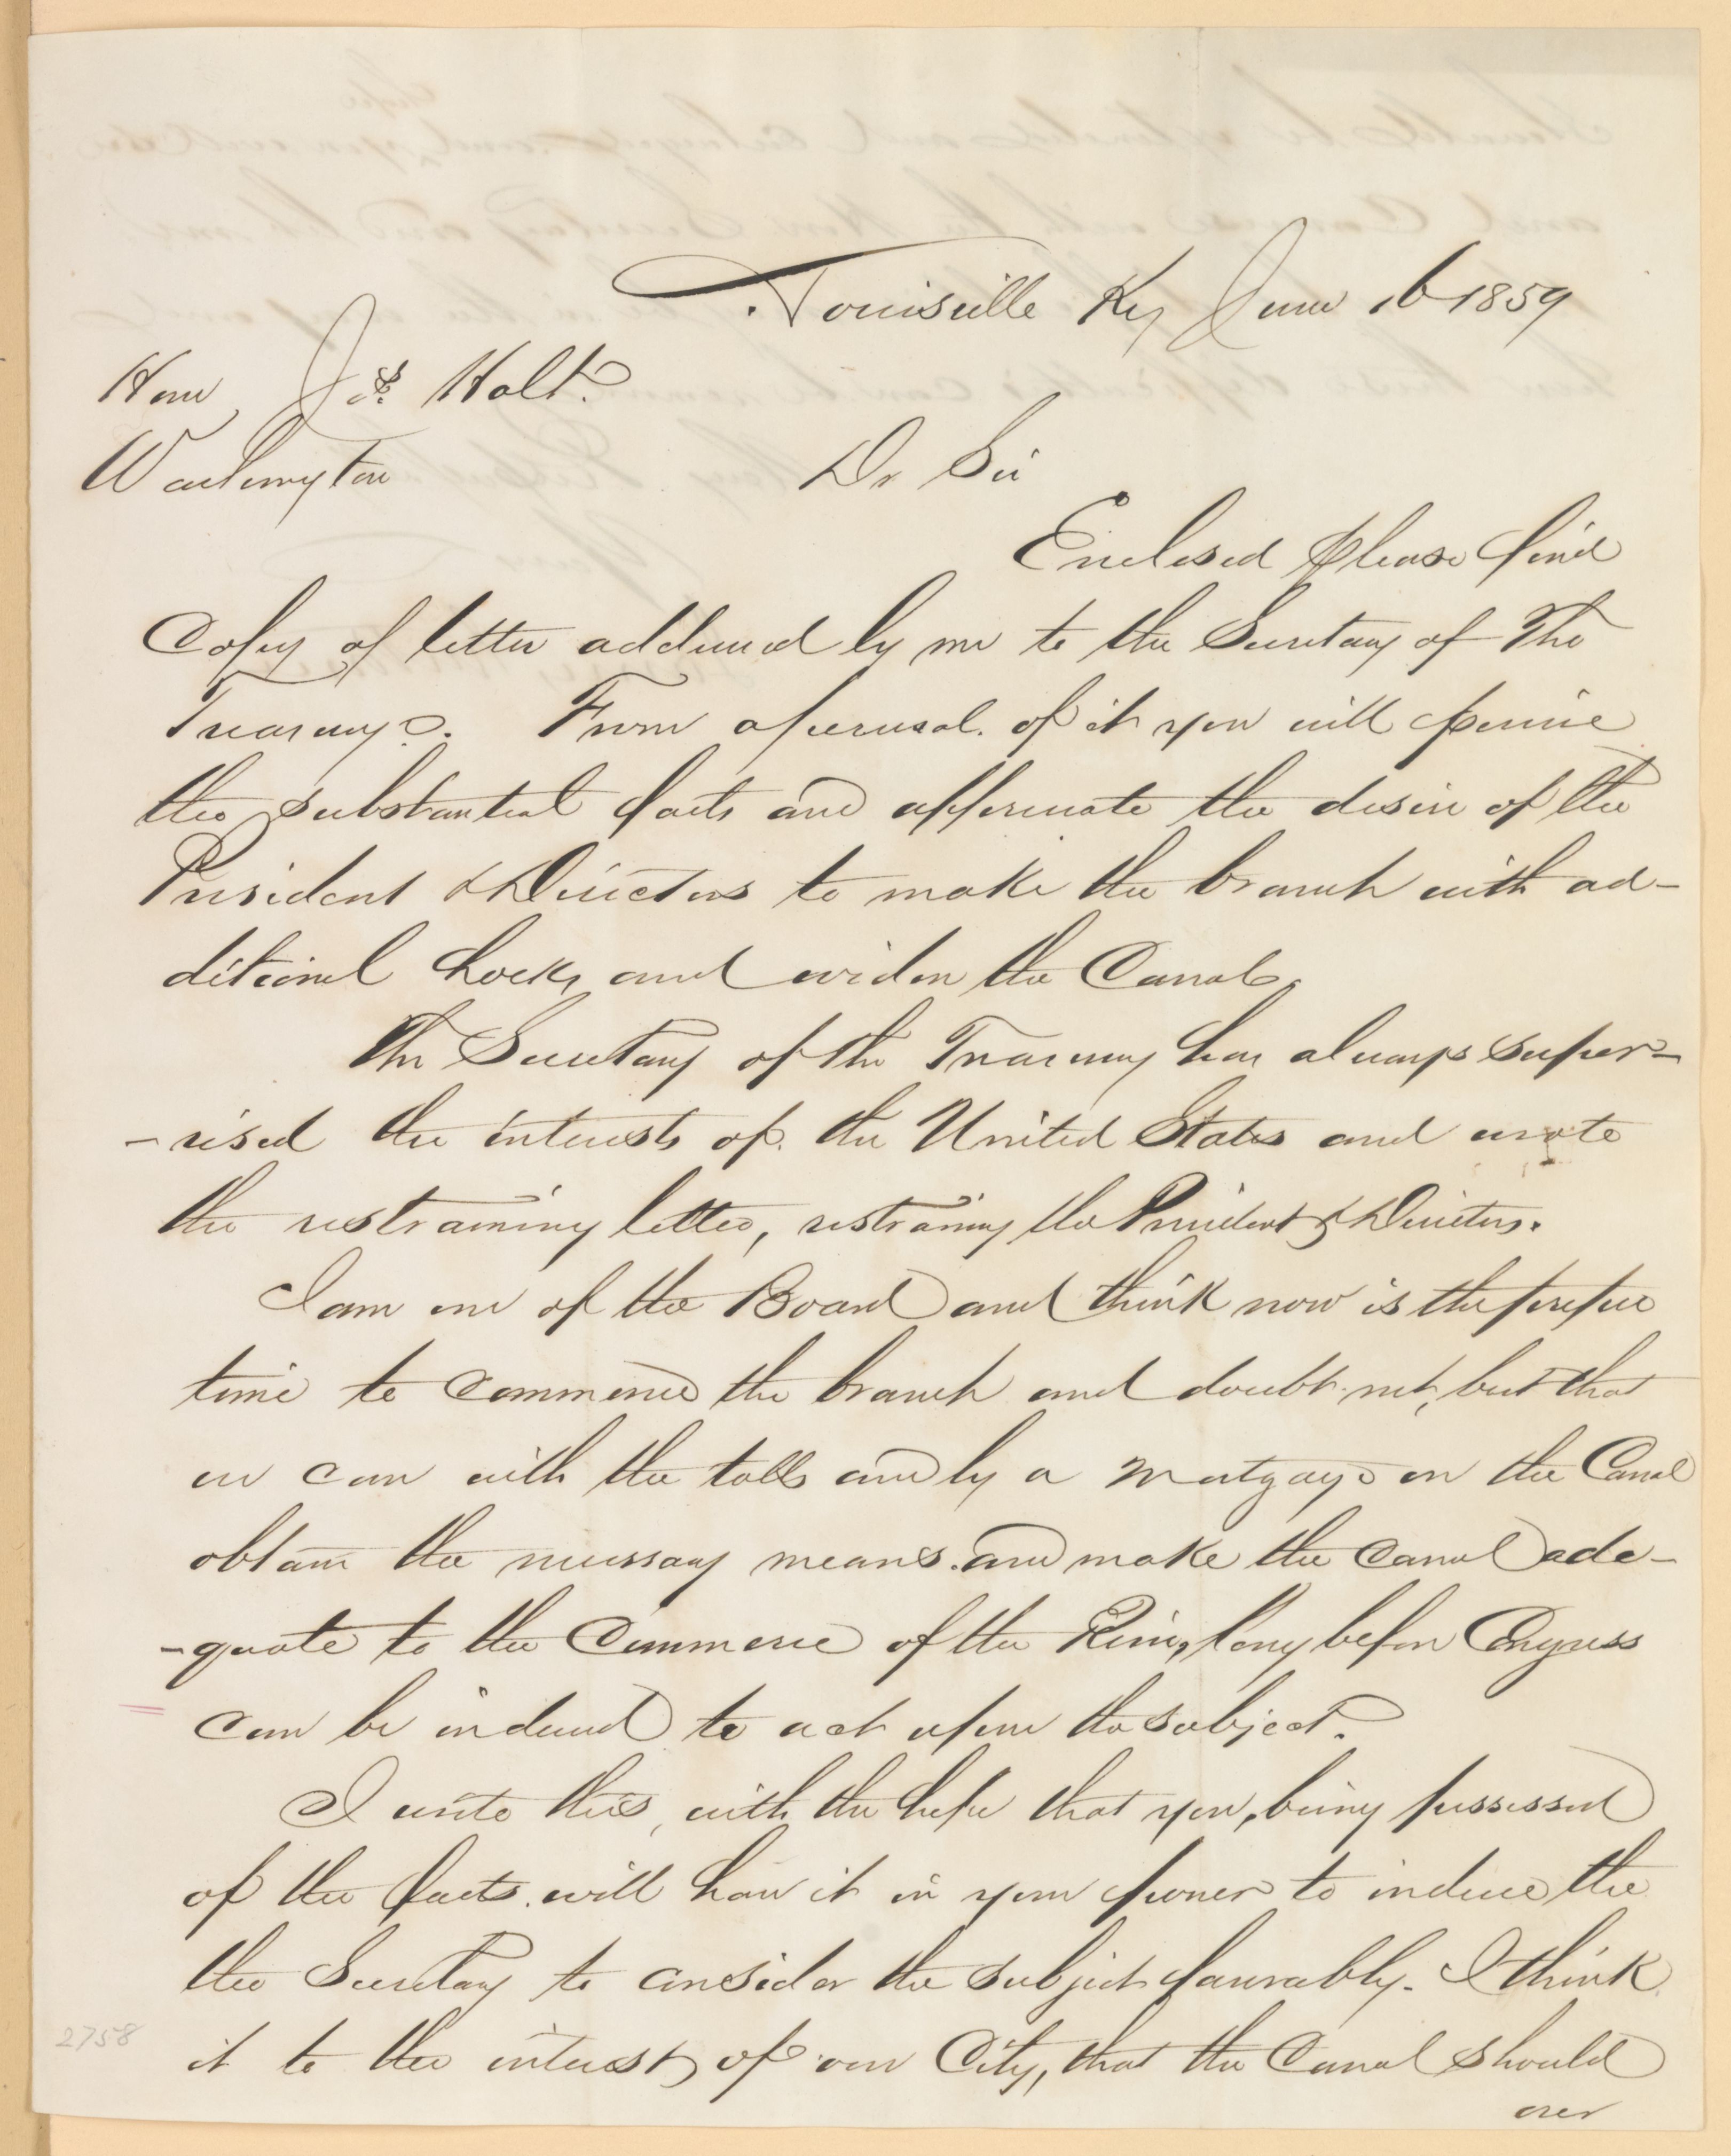 Louisville Ky June 16 1859
Hon Jos. Holt.
Washington
Dr Sir
Enclosed please find
Copy of letter addressed by me to the Secretary of The
Treasury. From a perusal of it you will perceive
the substantial facts and appreciate the desire of the
President & Directors to make the branch with ad-
ditional Locks, and widen the Canal.
The Secretary of the Treasury has always super-
-vised the interests of the United States and wrote
the restraining letter, restraining the President & Directors.
I am one of the Board and think now is the proper
time to commence the branch and doubt not, but that
we can with the tolls and by a mortgage on the Canal
obtain the necessary means and make the Canal ade-
-quate to the Commerce of the River, long before Congress
can be induced to act upon the subject.
I write this, with the hope that you, being possessed
of the facts will have it in your power to induce the
the Secretary to consider the subject favorably. I think
it to the interest of our City, that the Canal should
over
2758